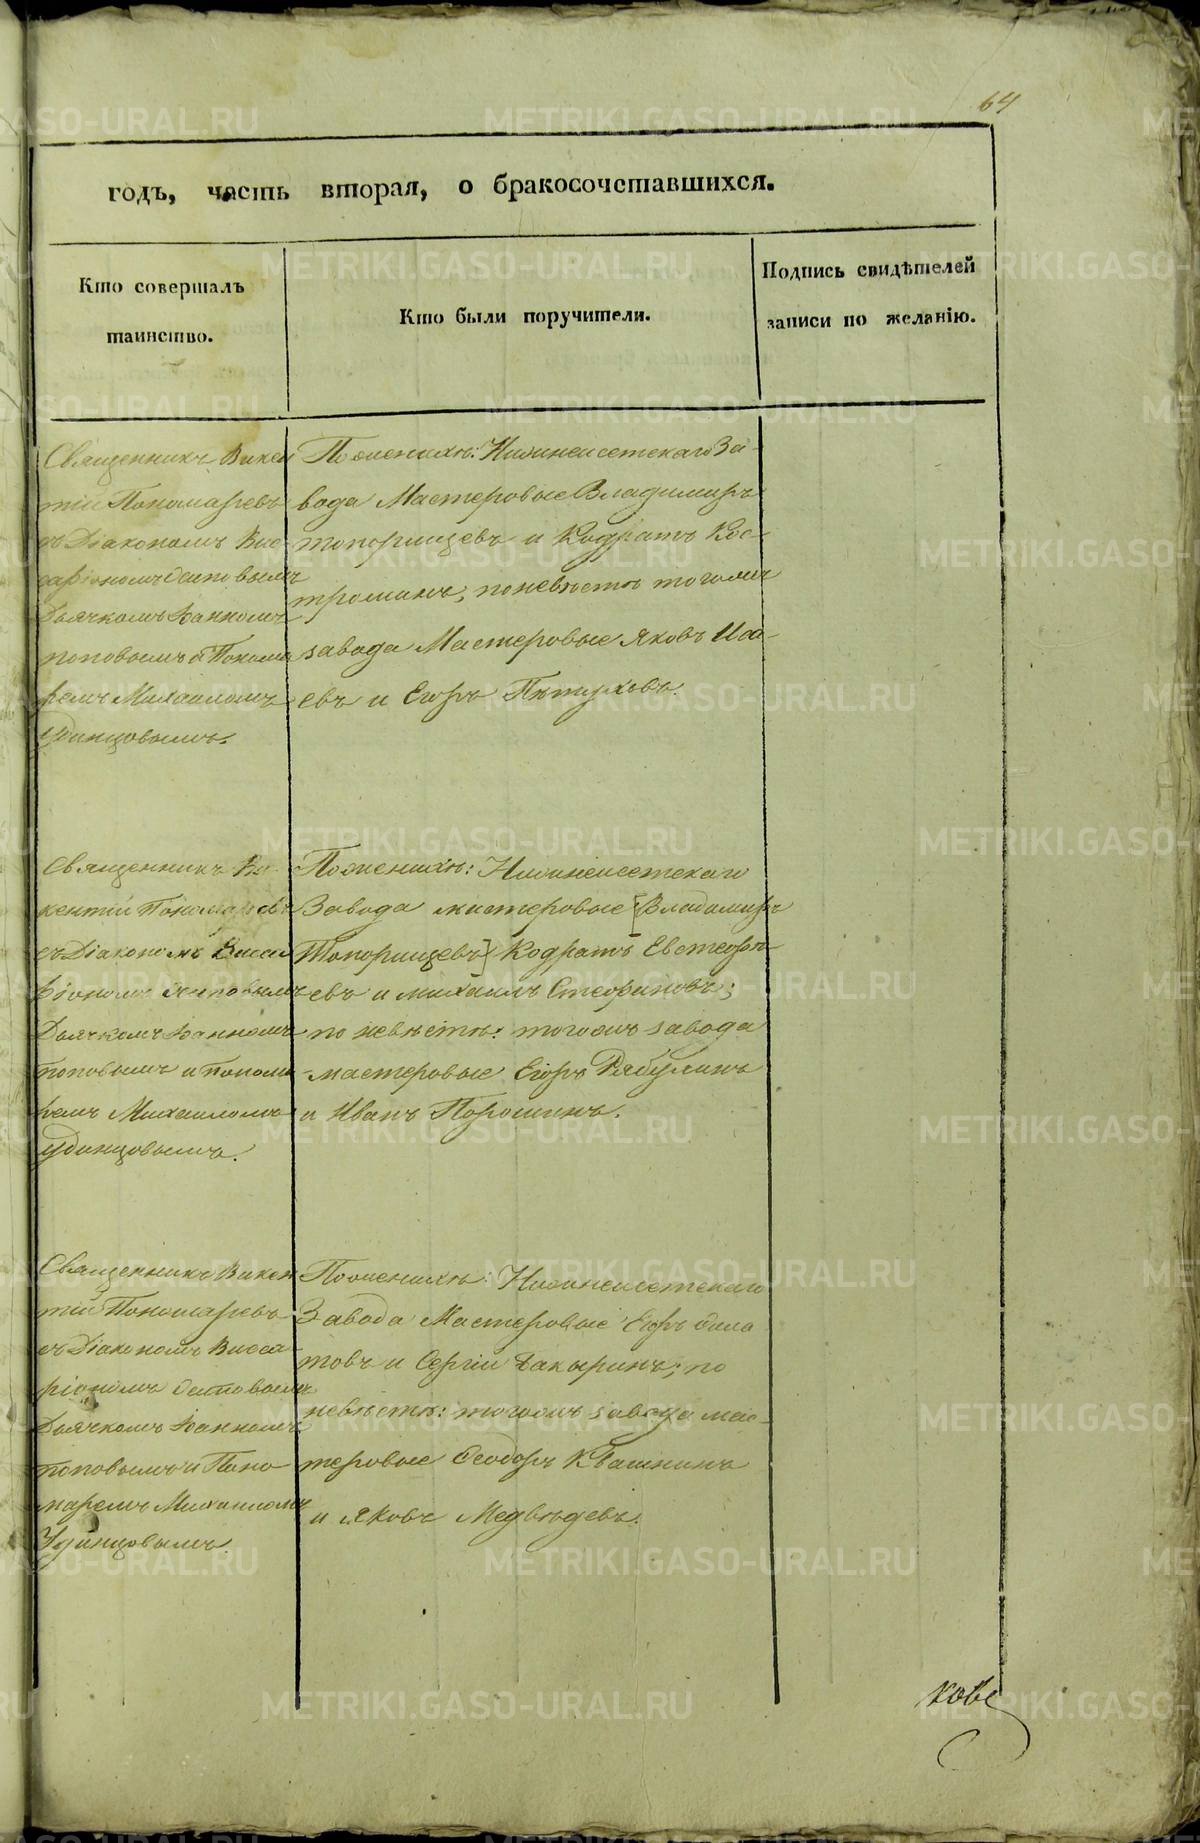 64
годъ, часть вторая, о бракосочетавшихся.
Кто совершалъ
таинство.
Кто были поручители.
Подпись свидѣтелей
записи по желанію.
Священникъ Викен
тій Пономаревъ
съ Діакономъ Вис-
саріономъ Осиповымъ
Дьячкомъ Іоанномъ
поповымъ и Понома
ремъ Михаиломъ
Удинцовымъ.
По женихѣ: Нижнеисетскаго За-
вода Мастеровые Владимиръ
топорищевъ и Кодратъ Кос-
троминъ; по невѣстѣ тогожъ
завода Мастеровые Яковъ Иса-
евъ и Егоръ Пѣтуховъ.
Священникъ Ви-
кентій Пономаревъ
съ Діакономъ Висса
ріономъ Осиповымъ
Дьячкомъ Іоанномъ
поповымъ и понома
ремъ Михаиломъ
удинцовымъ.
По женихѣ: Нижнеисетскаго
Завода мастеровые [Владимиръ
Топорищевъ] Кодратъ
евъ и михаилъ
по невѣстѣ: тогожъ завода
мастеровые Егоръ Рябухинъ
и Иванъ Порошинъ.
Священникъ Викен
тій Пономаревъ
съ Діакономъ Висса
ріономъ Осиповымъ
Дьячкомъ Іоанномъ
поповымъ и Поно
маремъ Михаиломъ
Удинцовымъ.
По женихѣ: Нижнеисетскаго
Завода Мастеровые Егоръ
товъ и Сергій по
невѣстѣ: тогожъ завода мас-
теровые Ѳеодоръ Квашнинъ
и Яковъ Медвѣдевъ.
ковъ
METRIKI.GASO-URAL.RU